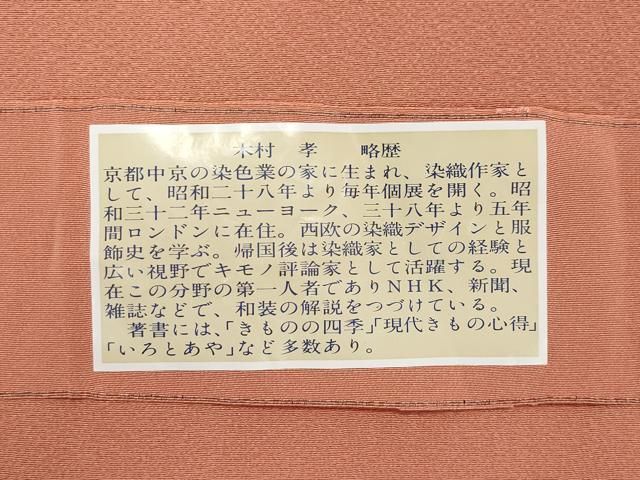 木村　孝　　略歴
京都中京の染色業の家に生まれ、染織作家と
して、昭和二十八年より毎年個展を開く。昭
和三十二年ニューヨーク、三十八年より五年
間ロンドンに在住。西欧の染織デザインと服
飾史を学ぶ。帰国後は染織家としての経験と
広い視野でキモノ評論家として活躍する。現
在この分野の第一人者でありNHK、新聞、
雑誌などで、和装の解説をつづけている。
　著書には、「きものの四季」「現代きもの心得」
「いろとあや」など多数あり。